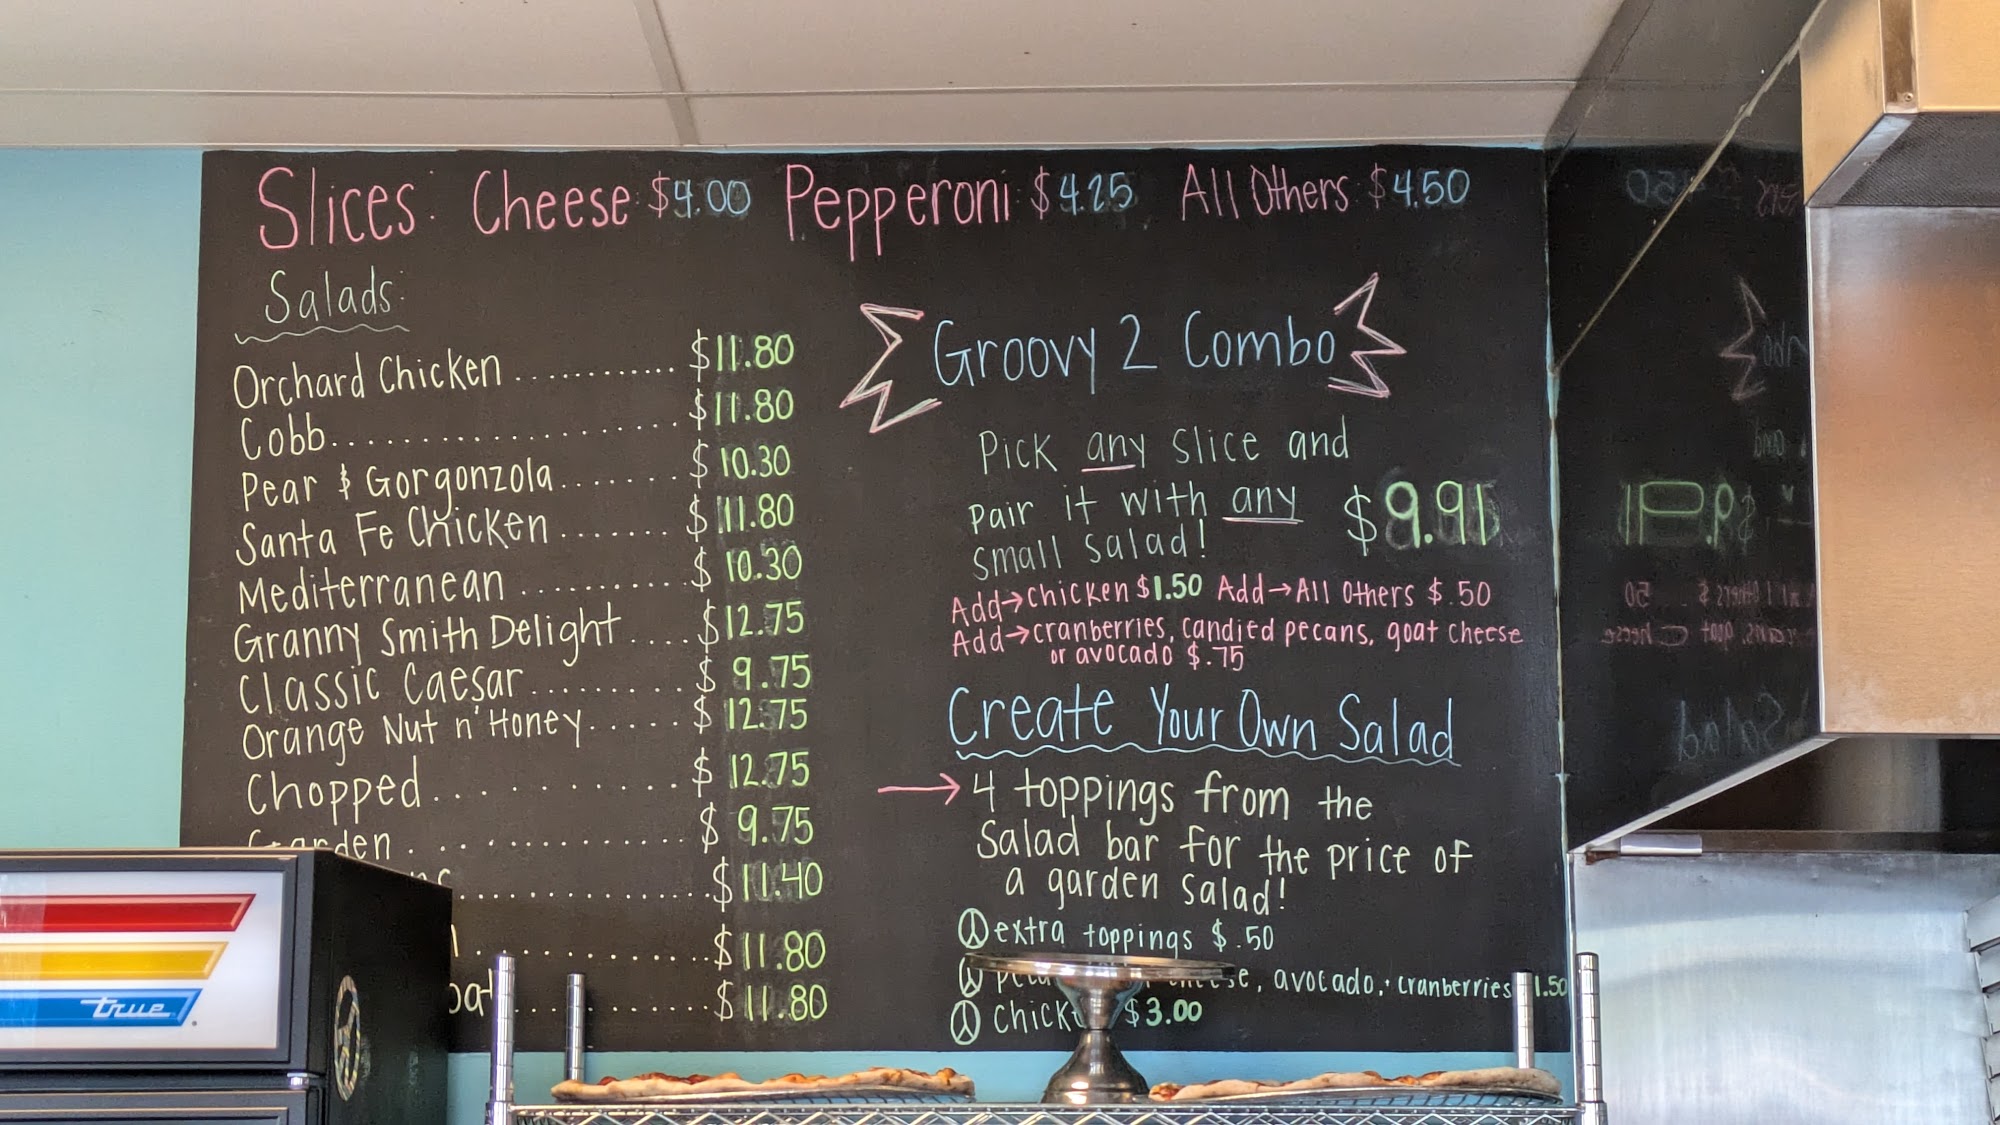 Slices: Cheese $4.00 Pepperoni $4.25 All Others $4.50
Salads:
Orchard Chicken ............ $11.80
Cobb.................... $11.80
Pear & Gorgonzola....... $10.30
Santa Fe Chicken ....... $11.80
Mediterranean .......... $10.30
Granny Smith Delight .... $12.75
Classic Caesar.......... $9.75
Orange Nut n' Honey...... $12.75
Chopped............... $12.75
Garden ................ $9.75
$11.40
$11.80
$11.80
Groovy 2 Combo
Pick any slice and
pair it with any
small salad!
$9.91
Add→Chicken $1.50 Add→All Others $.50
Add→cranberries, candied pecans, goat cheese
or avocado $.75
Create Your Own Salad
→ 4 toppings from the
Salad bar for the price of
a garden salad!
extra toppings $.50
avocado, cranberries 1.50
$3.00
true